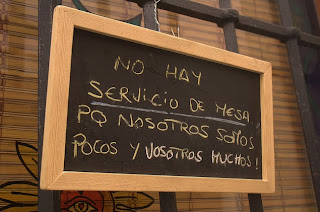 NO HAY
SERVICIO DE MESA!
PQ NOSOTROS SOMOS
POCOS Y VOSOTROS MUCHOS!